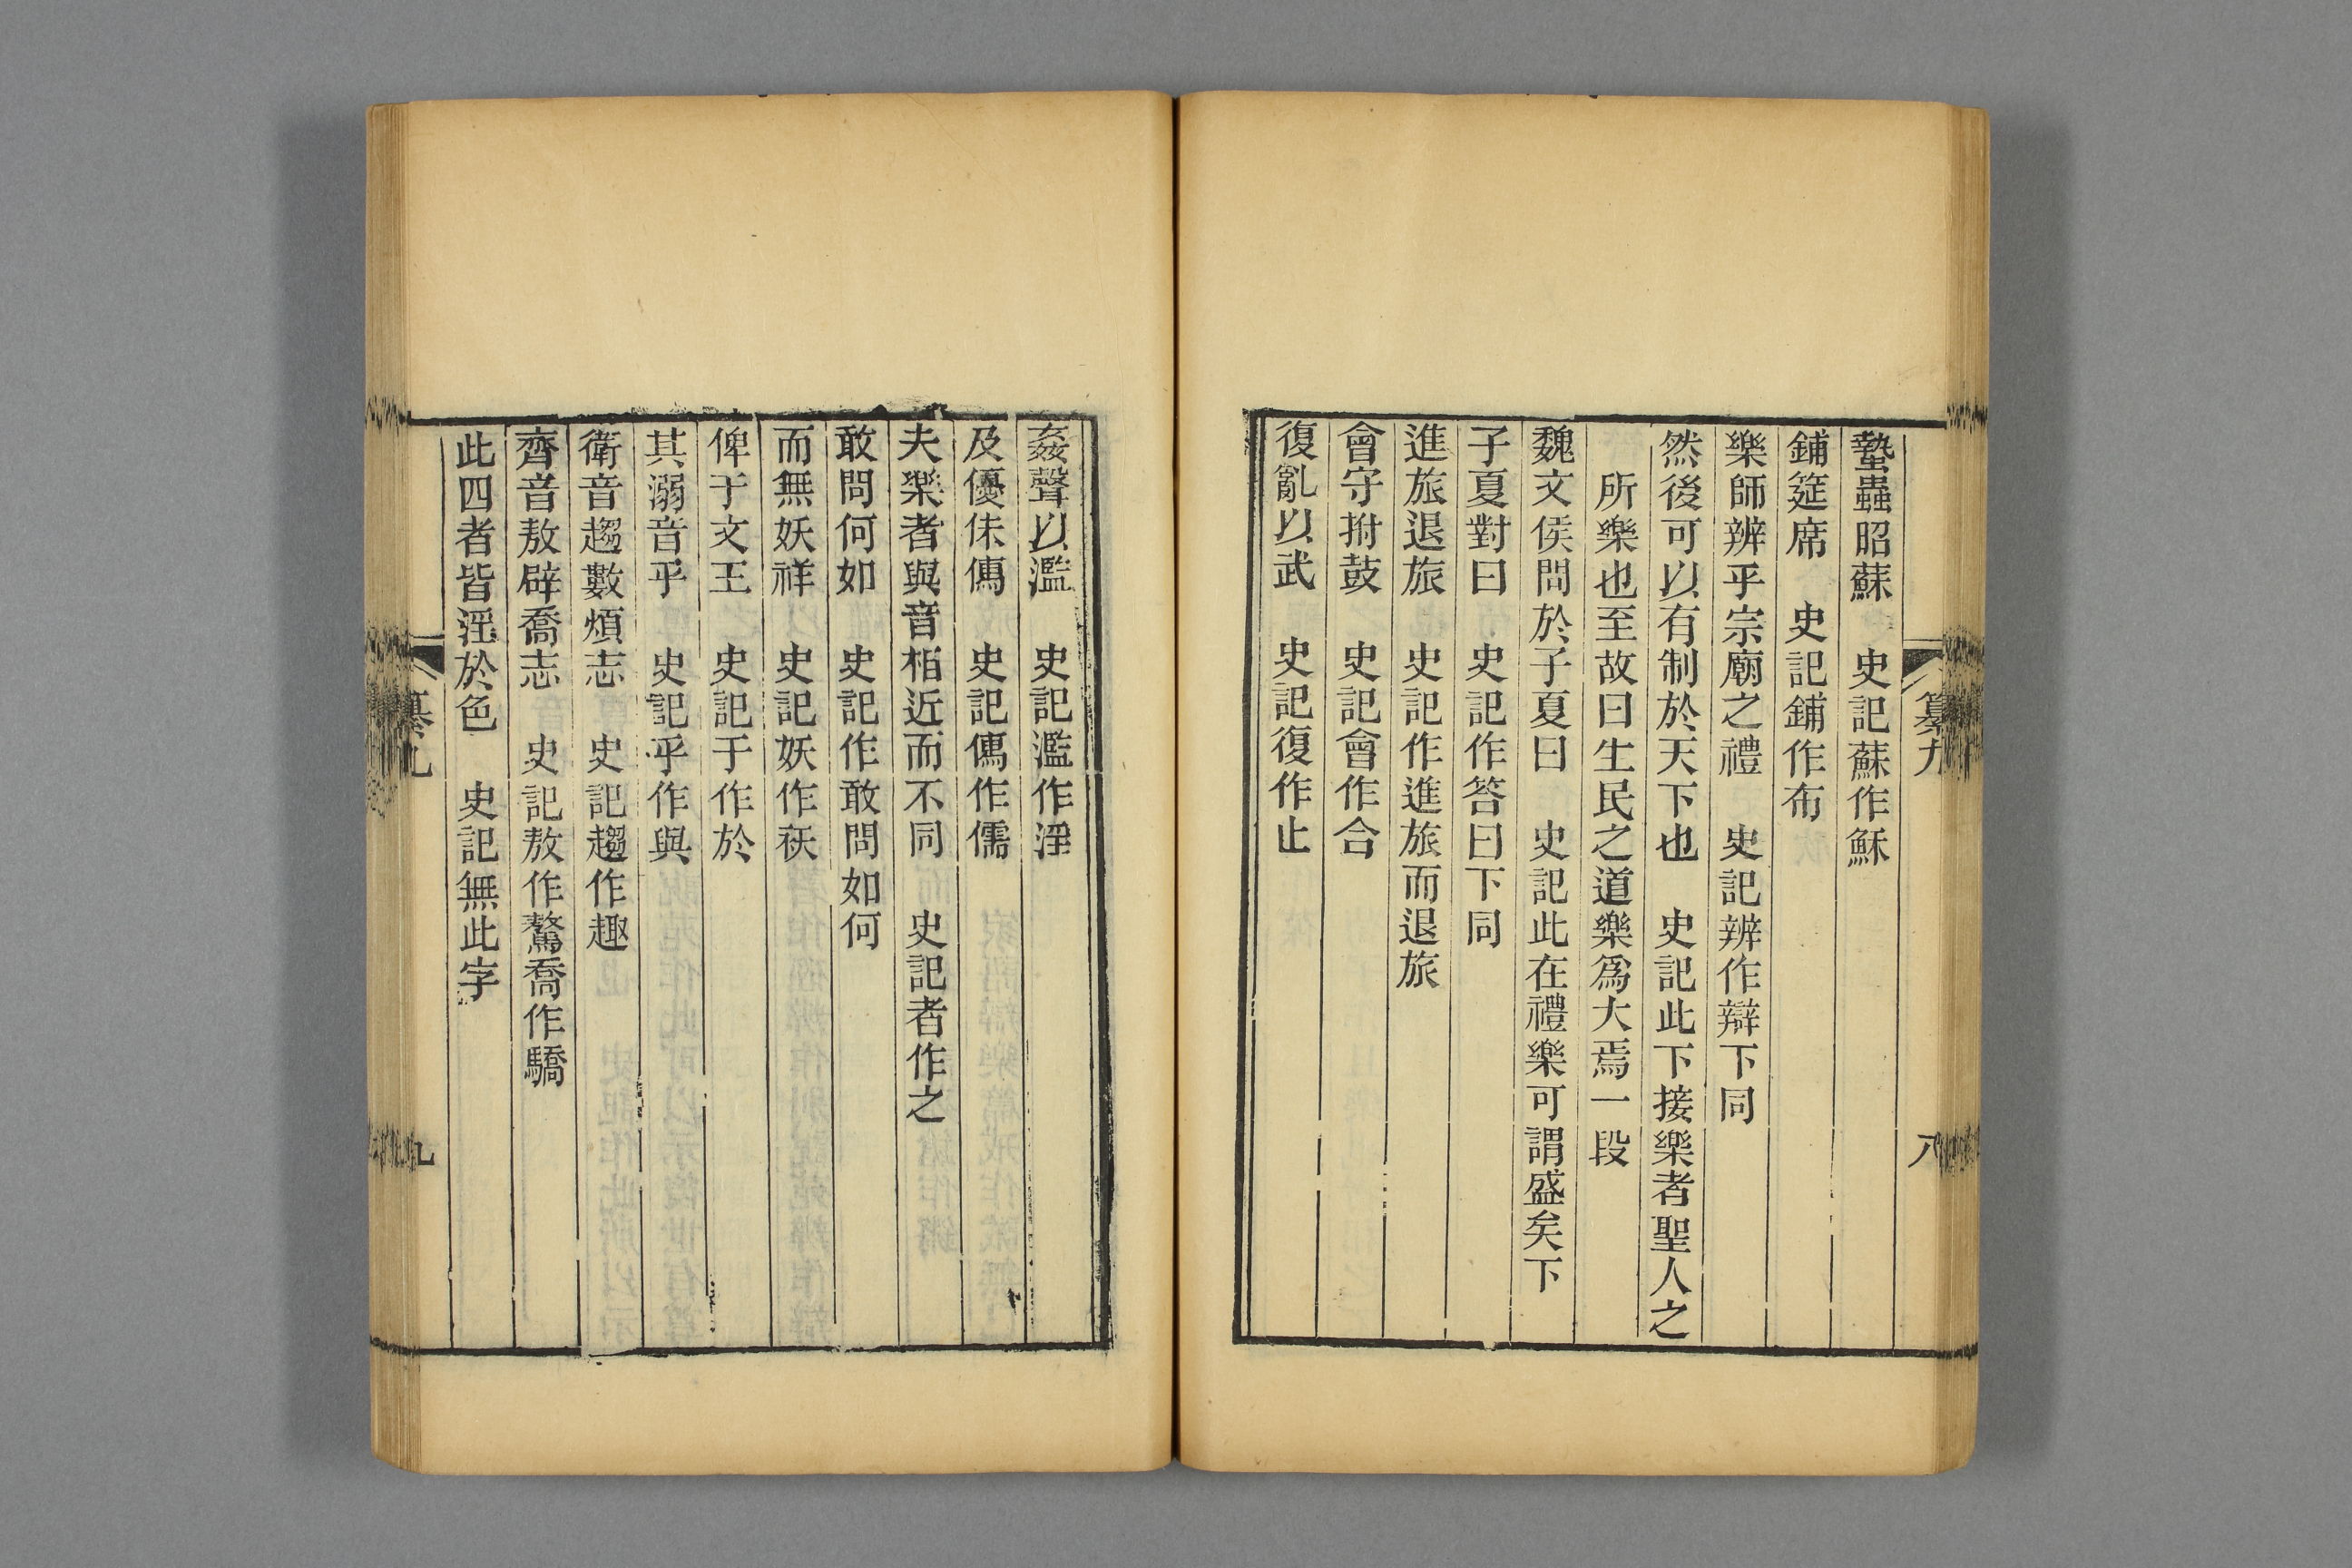 蟄蟲昭蘇　史記蘇作穌
鋪筵席　史記鋪作布
樂師辨乎宗廟之禮　史記辨作辯下同
然後可以有制於天下也　史記此下接樂者聖人之
所樂也至故曰生民之道樂爲大焉一段
魏文侯問於子夏曰　史記此在禮樂可謂盛矣下
子夏對曰　史記作答曰下同
進旅退旅　史記作進旅而退旅
會守拊鼓　史記會作合
復亂以武　史記復作止
纂九
八
姦聲以濫　史記濫作淫
及優侏儒　史記儒作儒
夫樂者與音相近而不同　史記者作之
敢問何如　史記作敢問如何
而無妖祥　史記妖作祅
俾于文王　史記于作於
其溺音乎　史記乎作與
衛音趨數煩志　史記趨作趣
齊音敖辟喬志　史記敖作驁喬作驕
此四者皆淫於色　史記無此字
纂九
九